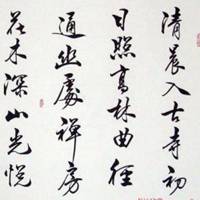 清晨入古寺初
日照高林曲徑
通幽處禪房
花木深山光悅